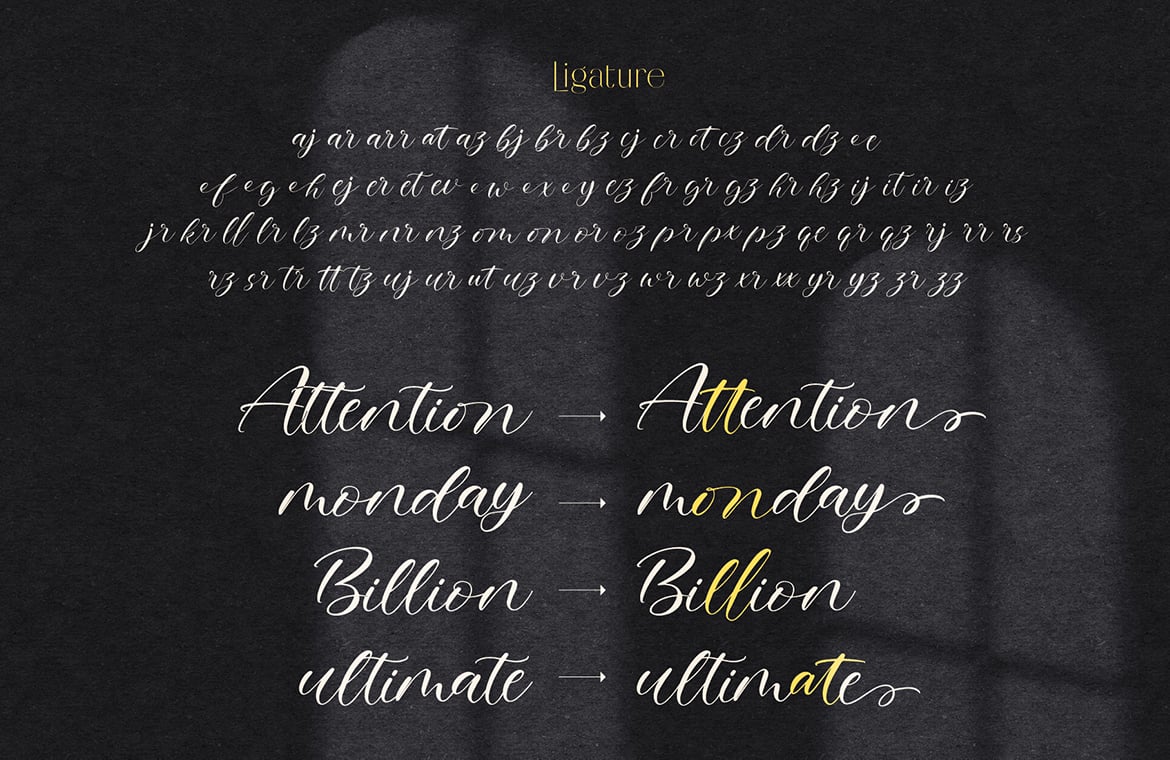 Ligature
aj ar arr at az bj br bz cj cr ct cz dr dz ec
ef eg eh ej er et ev ew ex ey ez fr gr gz hr hz ij it ir iz
jr kr ll lr lz mr nr nz om on or oz pr px pz qe qr qz rj rr rs
rz sr tr tt tz uj ur ut uz vr vz wr wz xr xx yr yz zr zz
Attention → Attention
monday → monday
Billion → Billion
ultimate → ultimate